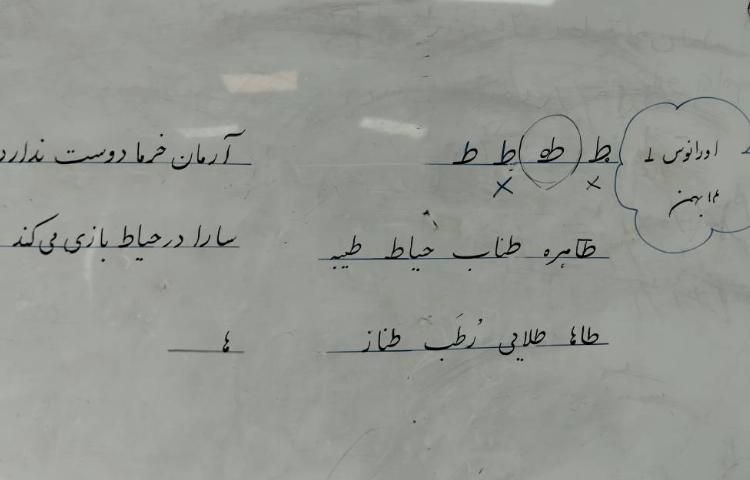 اورانوس ۱
۱۴ بهمن
ط ط ط ط
آرمان خرما دوست ندارد
طاهره طناب حیاط طیبه
سارا در حیاط بازی می‌کند
طاها طلایی رُطَب طناز
ها